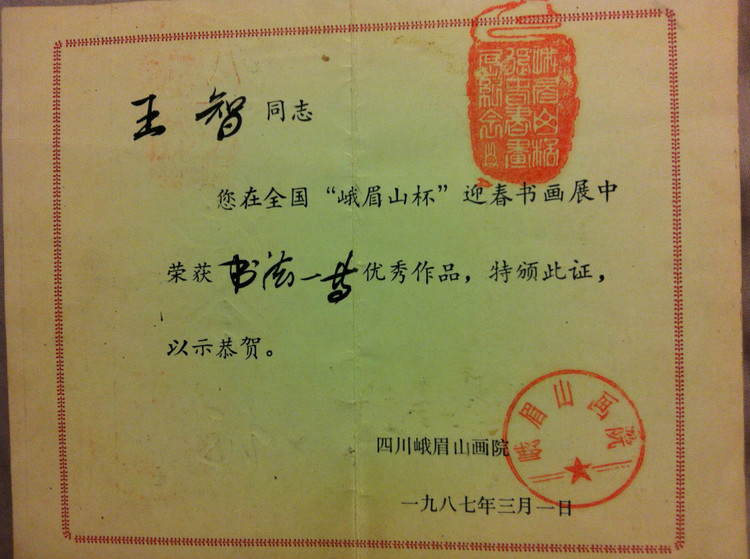 王智同志
您在全国“峨眉山杯”迎春书画展中
荣获书法一等优秀作品，特颁此证，
以示恭贺。
四川峨眉山画院
一九八七年三月一日
峨眉山画院